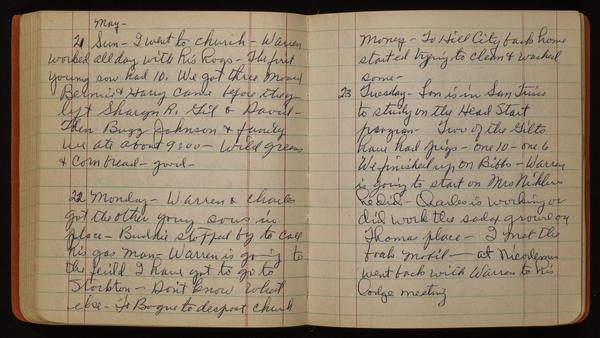 May-
21 Sun - I went to church - Warren
worked all day with his hogs - The first
young sow had 10. We got three more
Bernice & Harry came before they
left Sharyn R, Gil & David -
Then Buzz Johnson & family
we ate about 9:00 - Wild greens
& Corn bread - good -
22 Monday - Warren & Charles
got the other young sows in
place - Burdie stopped by to call
his gas man - Warren is going to
the feild I have got to go to
Stockton - Don't know what
else - To Bogue to despost church
Money - To Hill City back home
started trying to clean & washed
some -
23 Tuesday - Son is in San Frisco
to study on the Head Start
program - Two of the Gilts
have had pigs - one 10 - one 6
We finished up on Bibbs - Warren
is going to start on Mrs
he did - Charles is working or
did work the ground on
Thomas place - I met the
book mobil - at Nicodemus
went back with Warren to his
Lodge meeting